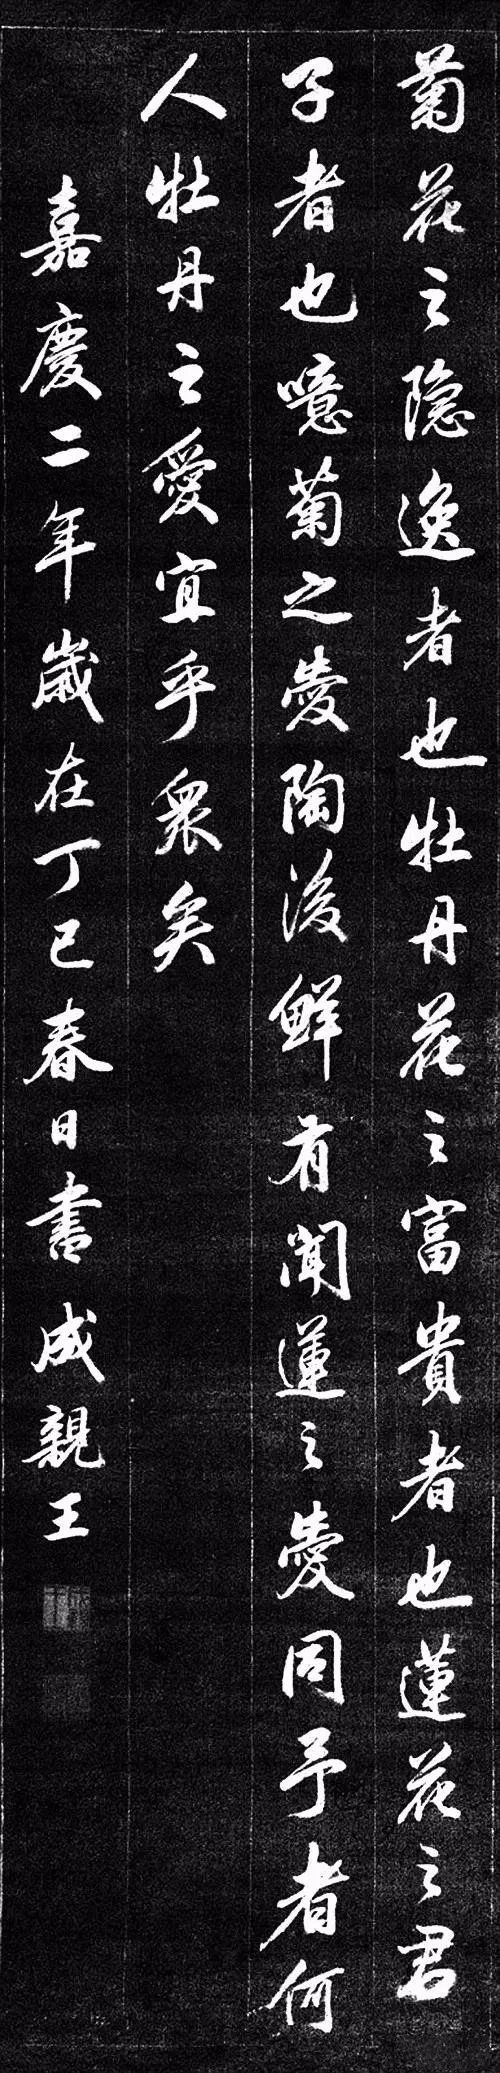 菊花之隐逸者也牡丹花之富貴者也蓮花之君
子者也噫菊之愛陶後鮮有聞蓮之愛同予者何
人牡丹之愛宜乎衆矣
嘉慶二年歲在丁巳春日書成親王